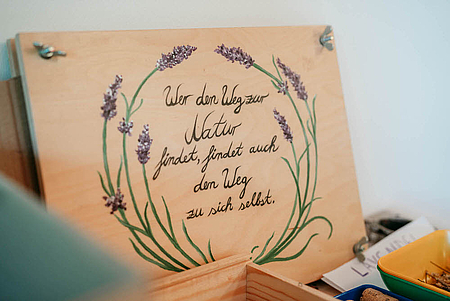 Wer den Weg zur
Natur
findet, findet auch
den Weg
zu sich selbst.
LAVENDEL